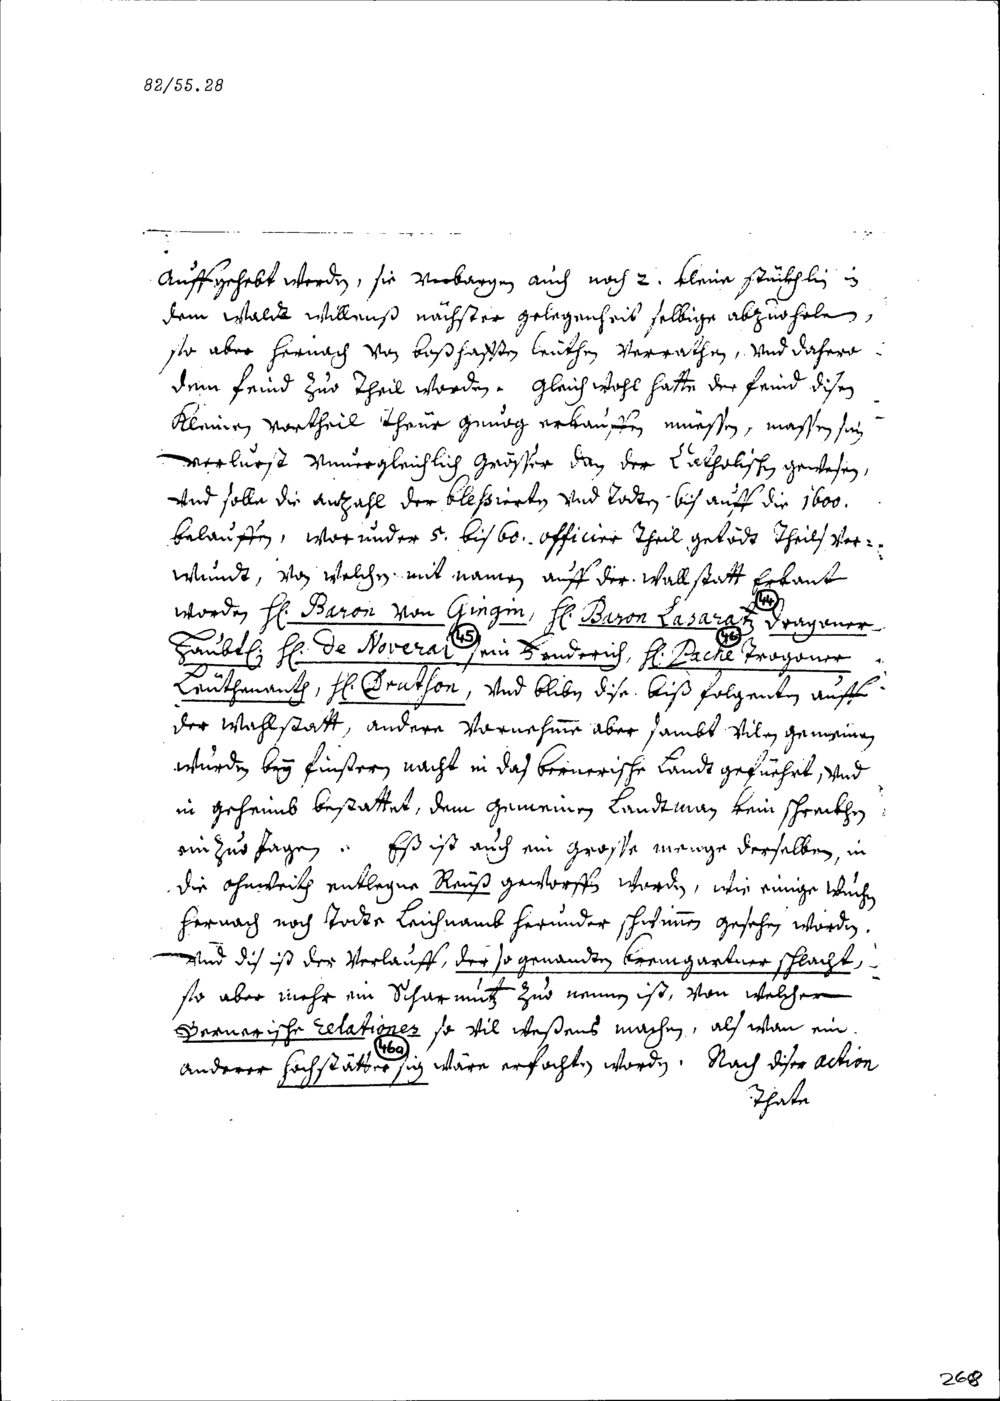 82/55.28
auffgehebt worden, sie verbargen auch noch 2. kleine stückhlin in
dem Waldt willenß nächster gelegenheit selbige abzuoholen,
so aber hernach von boßhafften leüthen verrathen, und dahero
dem feind zuo theil worden. gleich wohl hatte der feind disen
kleinen vortheil theür genuog erkauffen müessen, massen sein
verlurst unvergleichlich grösser dan der Catholischen gewesen,
und solle die anzahl der blessierten und todten biß auff die 1600.
belauffen, worunder 5. biß 60. officier theil getödt theils ver=
wundt, von welchen mit namen auff der wallstatt erkant
worden H. Baron von Gingin, H. Baron Lasaraz (44) Dragoner
Haubtl: H. de Noveral (45) sein Fenderich, H. Pache (46) Tragoner
Leüthenanth, H. Druthon, und bliben dise biß folgenten auff
der wahlstatt, andere vornehme aber sambt vilen gemeinen
wurden bey finsterer nacht in das bernerische Landt geführt, und
in geheimb bestattet, dem gemeinen Landtman kein schreckhen
ein zuo jagen. Eß ist auch ein grosse menge derselben, in
die ohnweith entlegne Reüß geworffen worden, wie einige wuchen
hernach noch todte Leichnamb herunder schwimen gesehen worden.
und diß ist der verlauff, der so genandten bremgartner schlacht,
so aber mehr ein Scharmütz zuo nennen ist, von welcher
Bernerische relationes so vil weßens machen, als wan ein
anderer hochstätter (46a) sig wäre erfochten worden. Nach diser action
thate
268